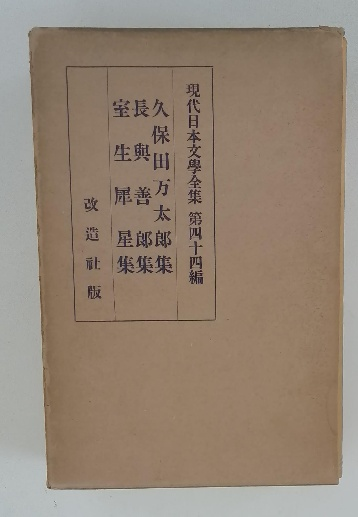 現代日本文學全集 第四十四編
久保田万太郎集
長與善郎集
室生犀星集
改造社版